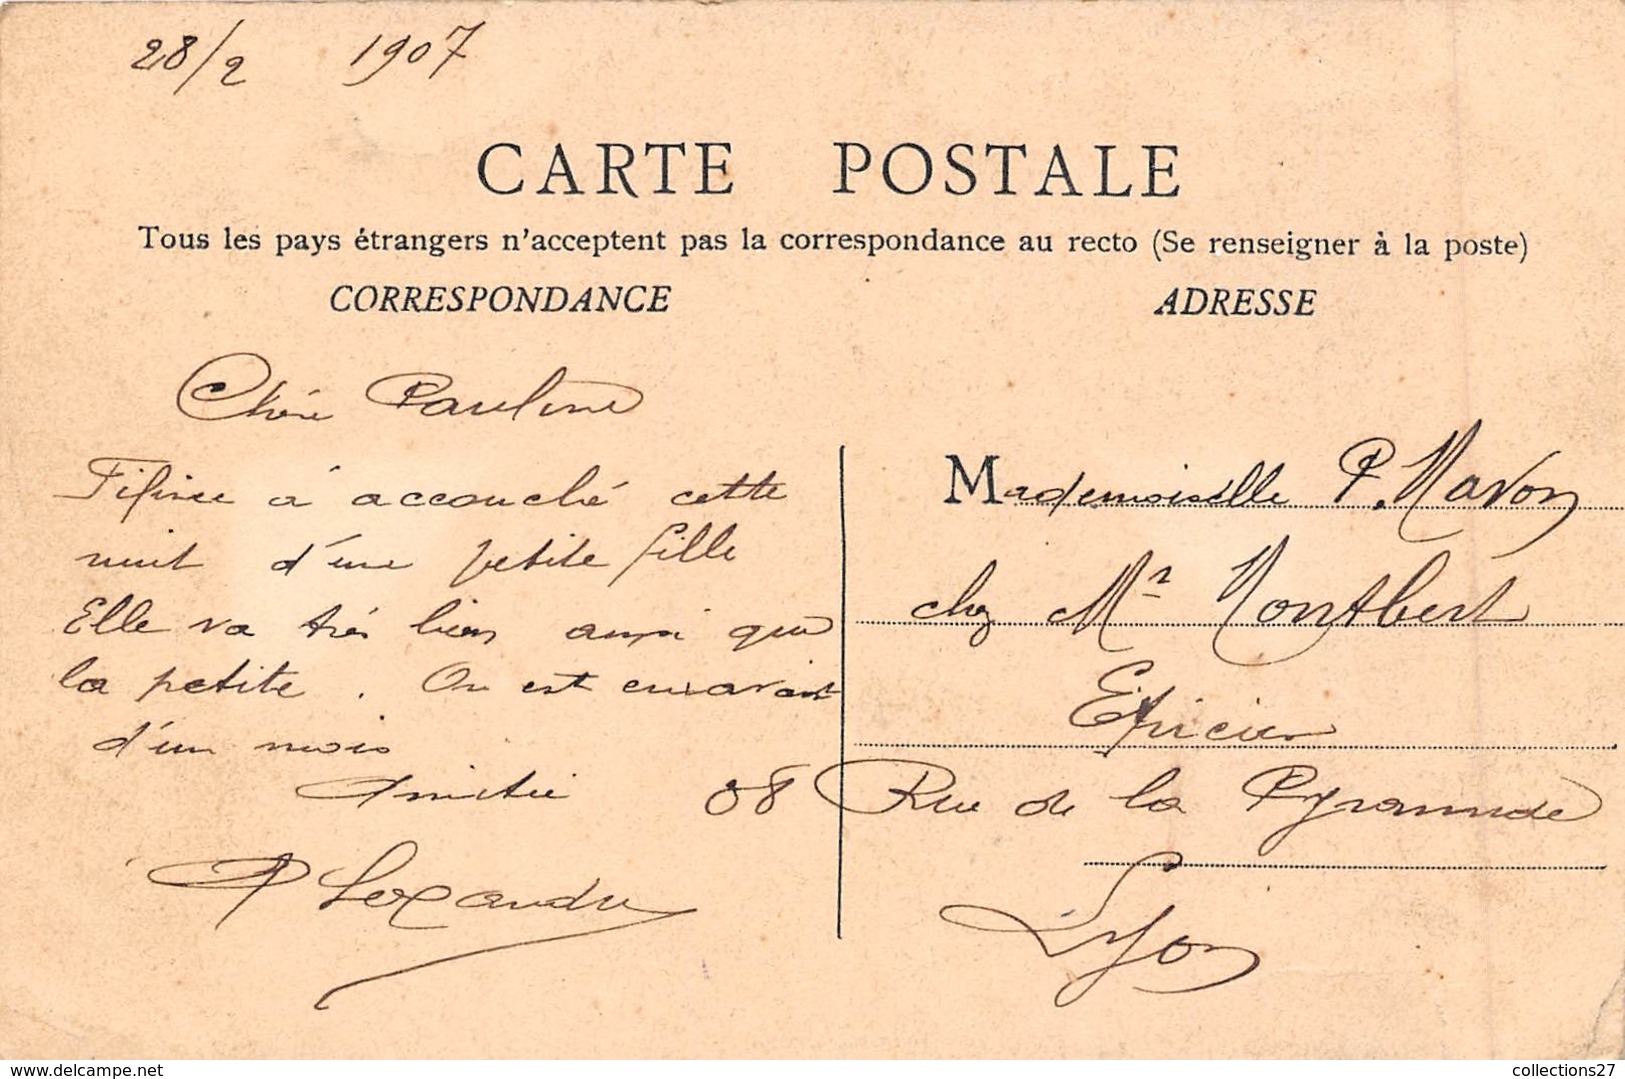 28/2 1907
CARTE POSTALE
Tous les pays étrangers n'acceptent pas la correspondance au recto (Se renseigner à la poste)
CORRESPONDANCE
ADRESSE
Chère Pauline
Fifine à accouché cette
nuit d'une petite fille
Elle va très bien ainsi que
la petite. On est en avant
d'un mois
Amitié
Alexandre
Mademoiselle P. Mavon
chez Mr Montbert
Epicier
08 Rue de la Pyramide
Lyon
delcampe.net
collections27